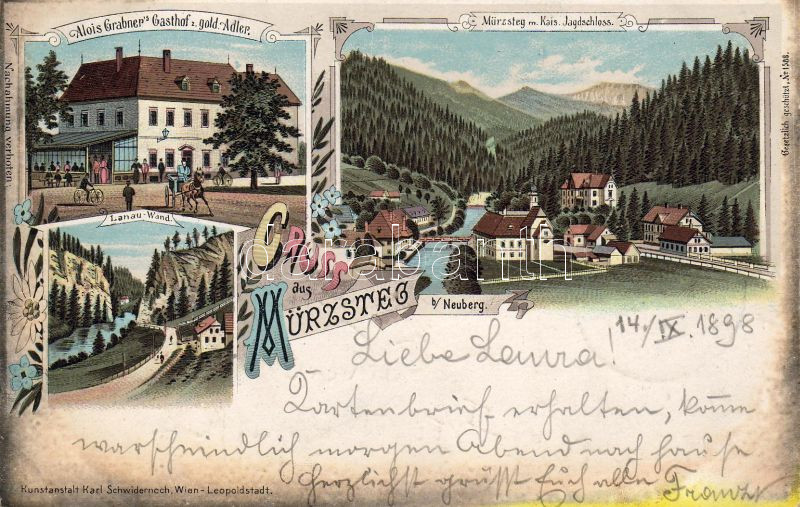 Alois Grabner's Gasthof z. gold. Adler.
Mürzsteg m. Kais. Jagdschloss.
Nachahmung verboten
Gesetzlich geschützt, No 1586.
Lanau-Wand.
GRUSS
aus
MÜRZSTEG
b/ Neuberg.
14./IX. 1898
Liebe Laura!
Kartenbrief erhalten, kome
warscheindlich morgen Abend nach hause
Herzlichst grüsst Euch alle Franz
Kunstanstalt Karl Schwidernoch, Wien - Leopoldstadt.